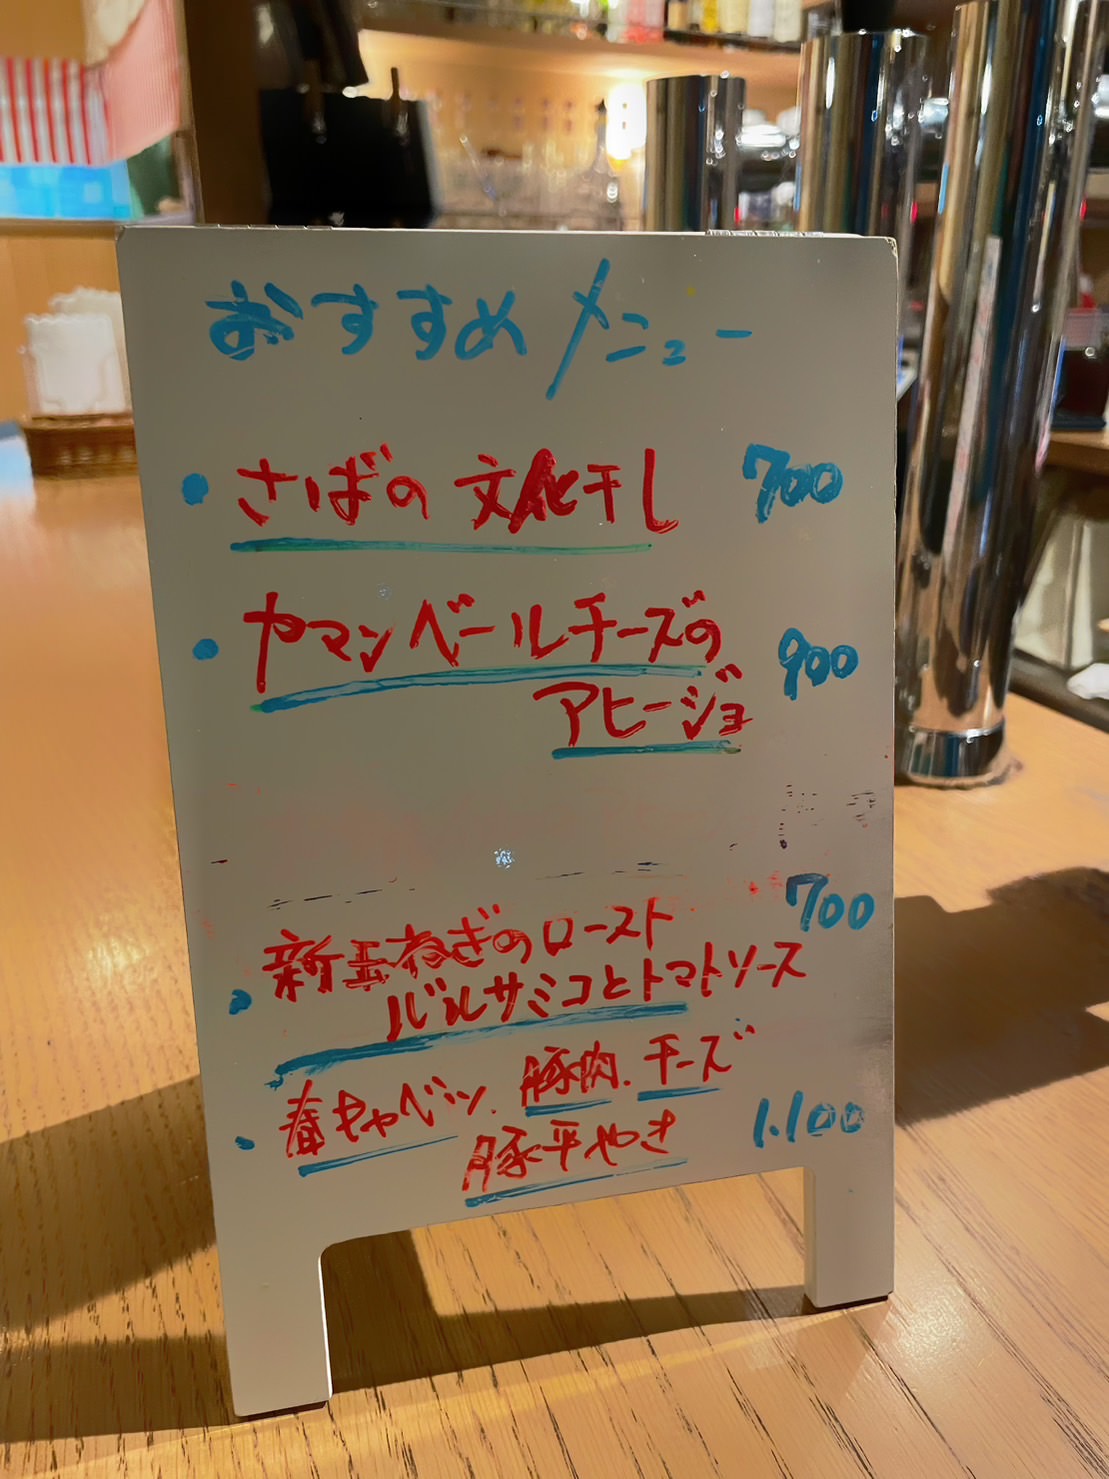 おすすめメニュー
・さばの文化干し 700
・カマンベールチーズの 900
アヒージョ
700
・新玉ねぎのロースト
バルサミコとトマトソース
・春キャベツ、豚肉、チーズ
豚平やき 1.100